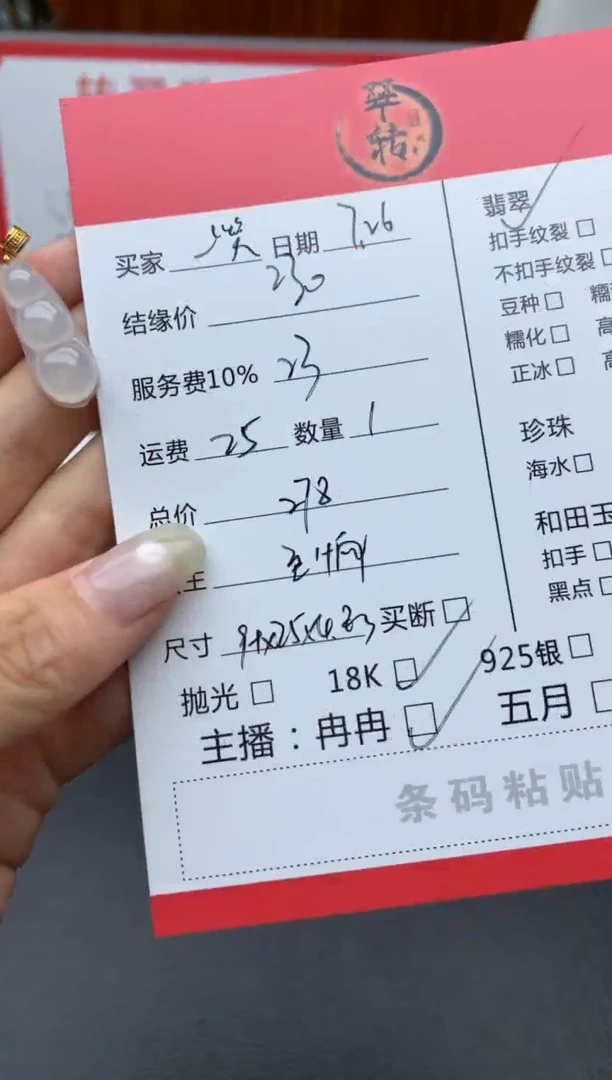 翠
转
买家 日期 7.26
结缘价 230
服务费10% 23
运费 25 数量 1
总价 278
主
尺寸 买断
抛光 18K 925银
主播：冉冉 五月
条码粘贴
翡翠
扣手纹裂
不扣手纹裂
豆种 糯
糯化 高
正冰 高
珍珠
海水
和田玉
扣手
黑点